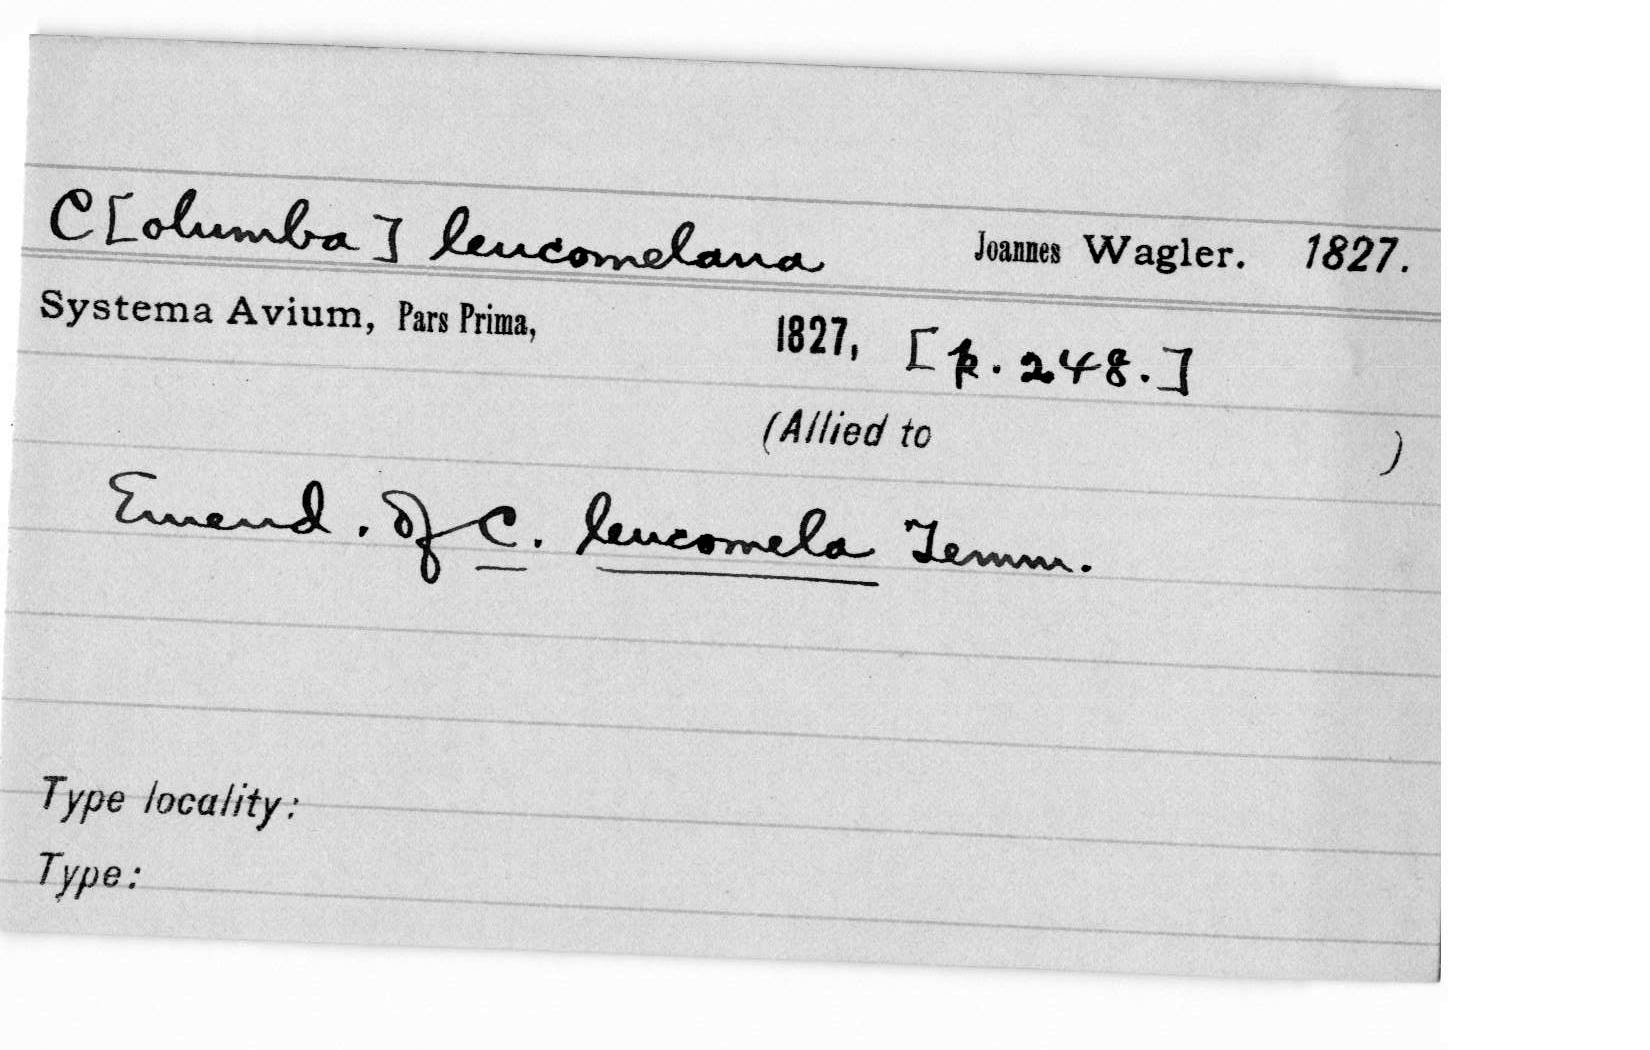 C[olumba] leucomelana Joannes Wagler. 1827.
Systema Avium, Pars Prima, 1827, [p. 248.]
(Allied to )
Emend. of C. leucomela Temm.
Type locality:
Type: